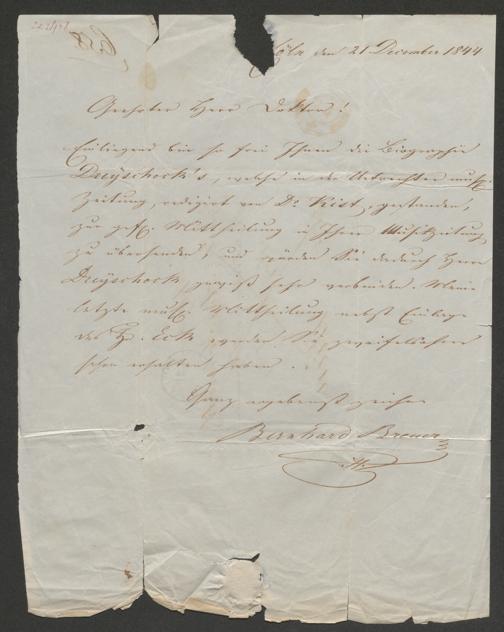 Cöln den 21 December 1844
Geehrter Herr Doktor!
Einliegend bin so frei Ihnen die Biographie
Dreyschock's, welche in der Utrechter mus.
Zeitung, redigirt von Dr Kist, gestanden,
zur gef. Mittheilung in Ihrer Musikzeitung
zu übersenden, und würden Sie dadurch Herrn
Dreyschock gewiß sehr verbinden. Meine
letzte mus. Mittheilung nebst Einlage
des H. Eck werden Sie zweifelsohne
schon erhalten haben.
Ganz ergebenst zeichne
Bernhard Breuer